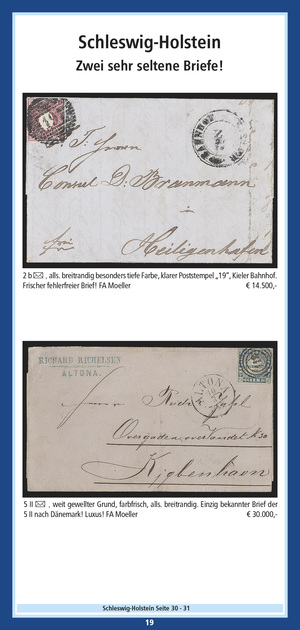 Schleswig-Holstein
Zwei sehr seltene Briefe!
BAHNHOF
Consul D: Brammann
Heiligenhafen
2 b ✉, alls. breitrandig besonders tiefe Farbe, klarer Poststempel „19“, Kieler Bahnhof.
Frischer fehlerfreier Brief! FA Moeller € 14.500,-
RICHARD RICHELSEN
ALTONA.
ALTONA
Herrn
Kjøbenhavn
5 II ✉, weit gewellter Grund, farbfrisch, alls. breitrandig. Einzig bekannter Brief der
5 II nach Dänemark! Luxus! FA Moeller € 30.000,-
Schleswig-Holstein Seite 30 - 31
19